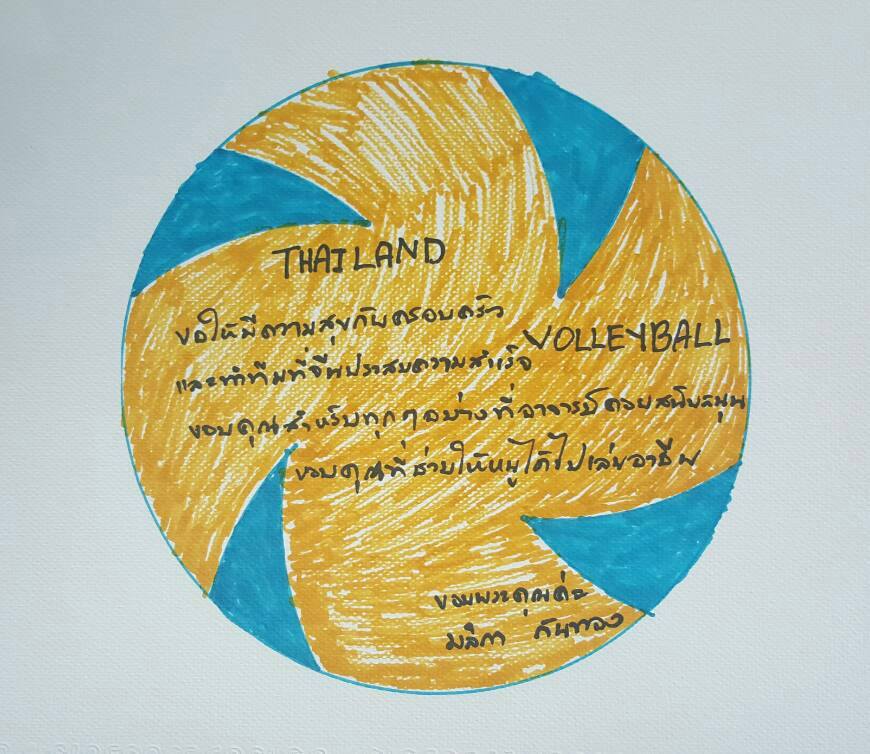 THAILAND
ขอให้มีความสุขกับครอบครัว
VOLLEYBALL
และทำทีมที่จีนประสบความสำเร็จ
ขอบคุณสำหรับทุกๆอย่างที่อาจารย์คอยสนับสนุน
ขอบคุณที่ช่วยให้หนูได้ไปเล่นอาชีพ
ขอบพระคุณค่ะ
มลิกา กันทอง